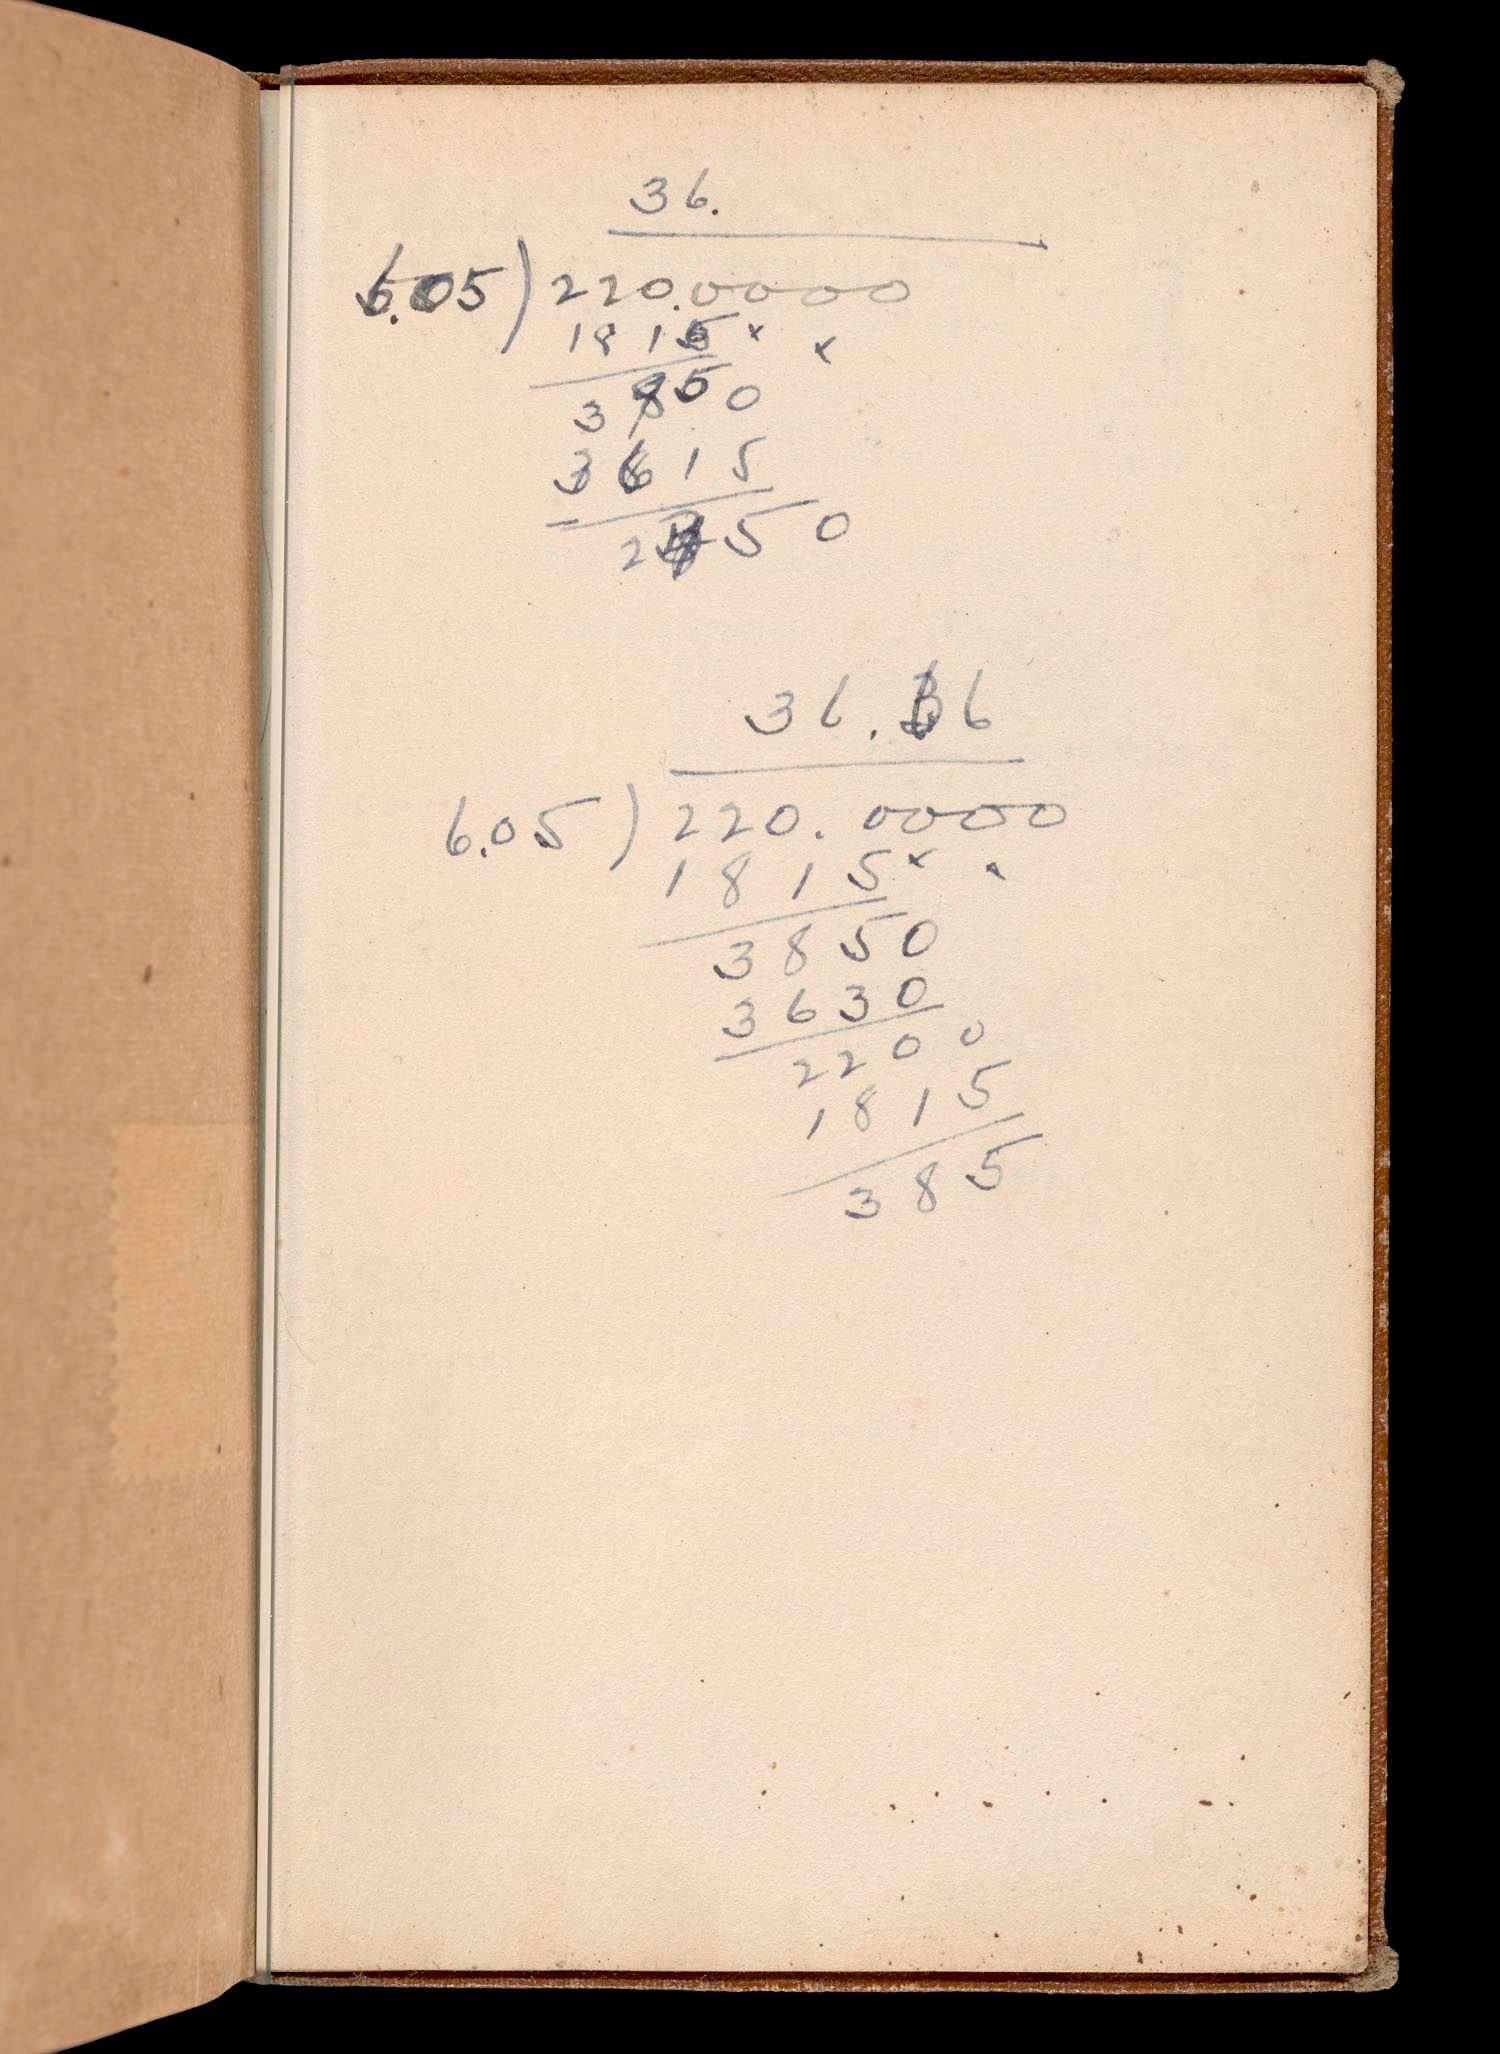 36.
6.05 ) 220.0000
1815 x x
3850
3615
2 50
36.36
6.05 ) 220.0000
1815 x
3850
3630
2200
1815
385